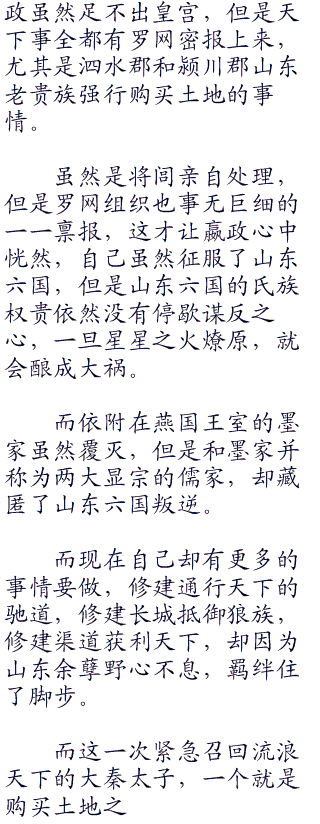 政虽然足不出皇宫，但是天
下事全都有罗网密报上来，
尤其是泗水郡和颍川郡山东
老贵族强行购买土地的事
情。
虽然是将闾亲自处理，
但是罗网组织也事无巨细的
一一禀报，这才让嬴政心中
恍然，自己虽然征服了山东
六国，但是山东六国的氏族
权贵依然没有停歇谋反之
心，一旦星星之火燎原，就
会酿成大祸。
而依附在燕国王室的墨
家虽然覆灭，但是和墨家并
称为两大显宗的儒家，却藏
匿了山东六国叛逆。
而现在自己却有更多的
事情要做，修建通行天下的
驰道，修建长城抵御狼族，
修建渠道获利天下，却因为
山东余孽野心不息，羁绊住
了脚步。
而这一次紧急召回流浪
天下的大秦太子，一个就是
购买土地之